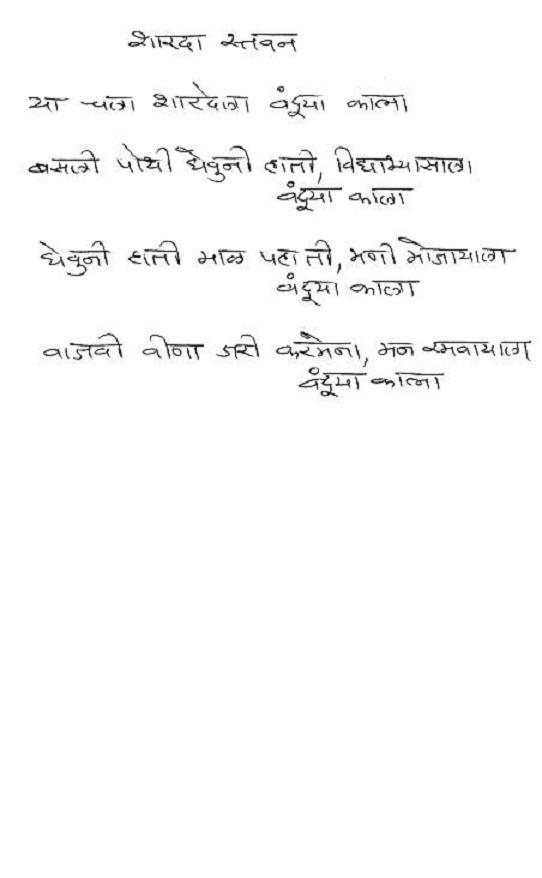 शारदा स्तवन
या चला शारदेला वंदूया काला
बसली पोथी घेवुनी हाती, विद्याभ्यासाला
वंदूया काला
घेवुनी हाती माळ पहा ती, मणी मोजायाला
वंदूया काला
वाजवी वीणा जरी करमेना, मन रमवायाला
वंदूया काला